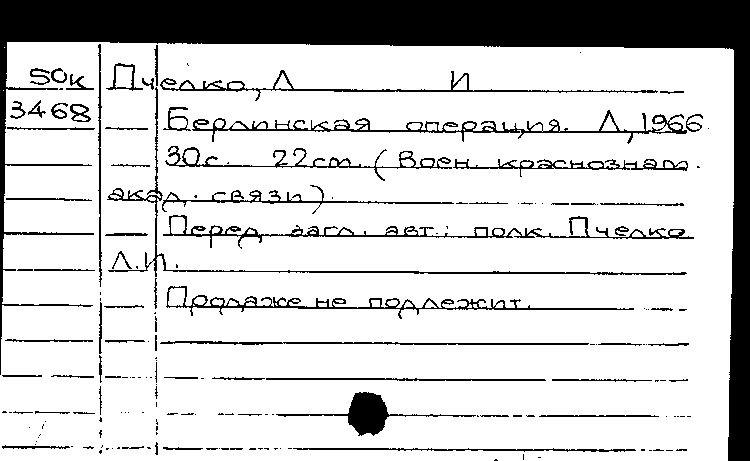 50к Пчелко, Л И
3468 Берлинская операция. Л, 1966
30с. 22cm. (Воен. краснознам.
акад. связи)
Перед загл. авт.: полк. Пчелко
Л.И.
Продаже не подлежит.